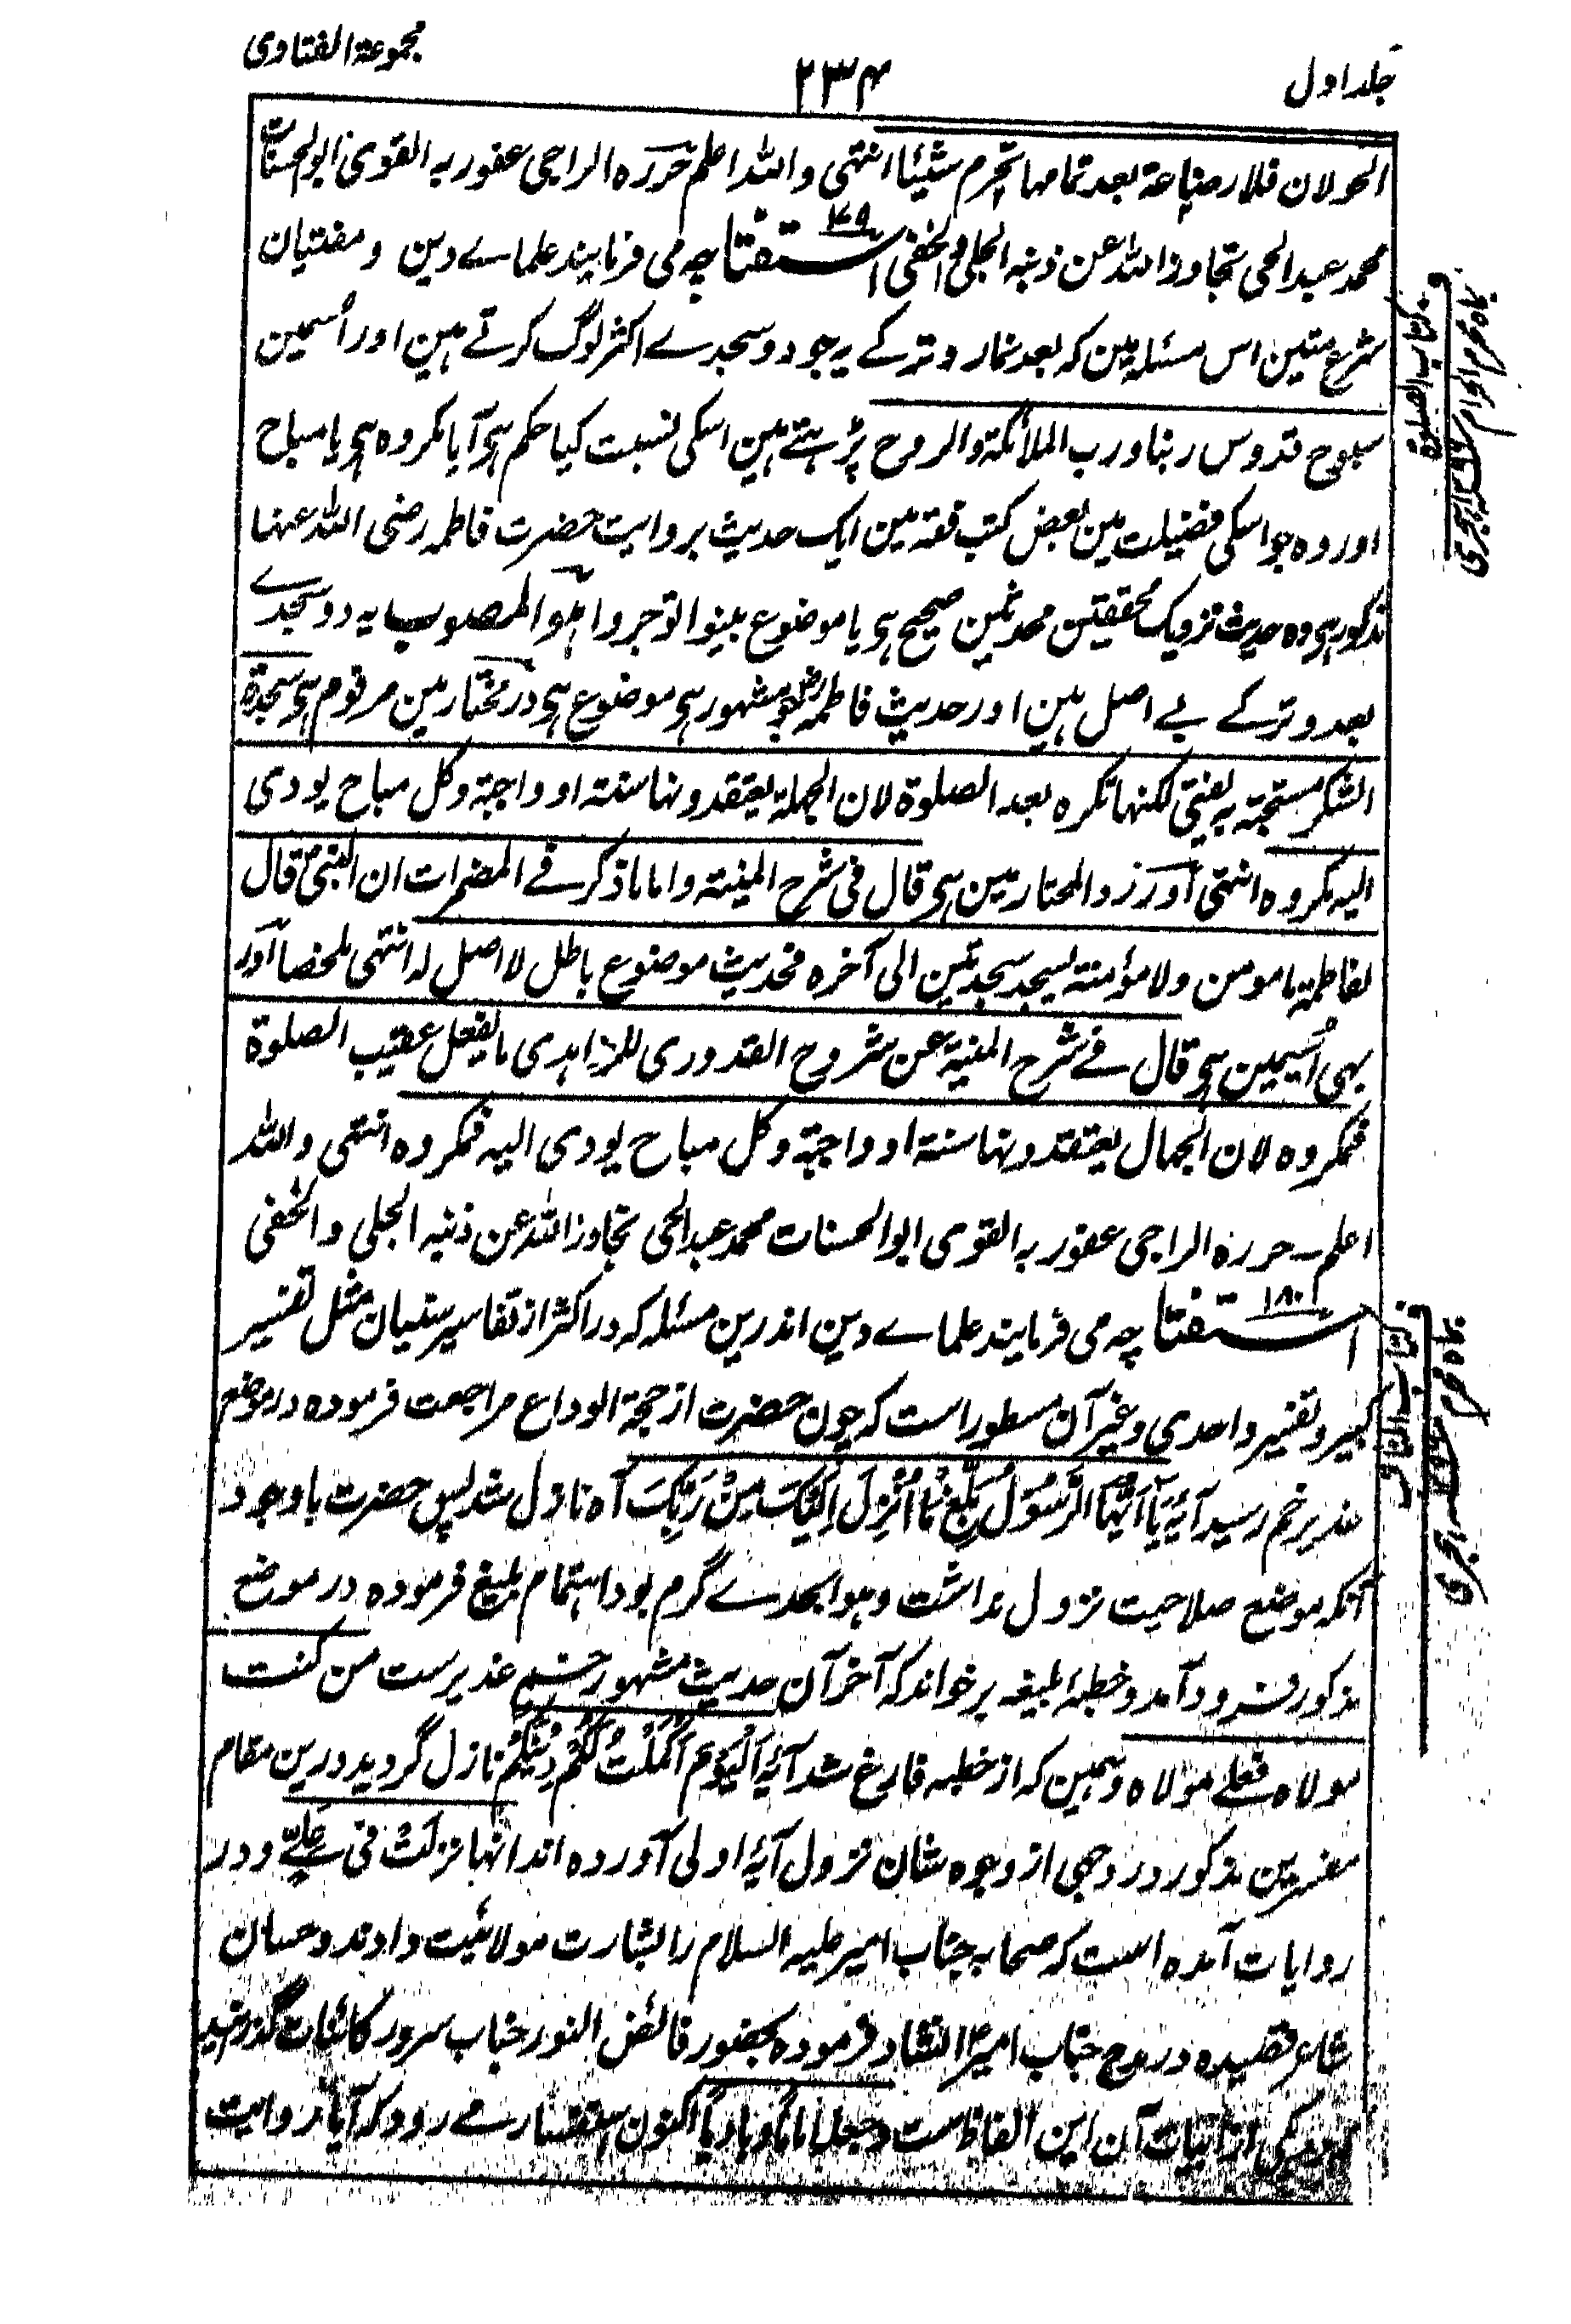 مجموعة الفتاوی
۲۳۴
جلد اول
الحولان فلا رضاعة بعد تمامها تحرم شیئا انتهی والله اعلم حرره الراجی عفو ربه القوی ابو الحسنات
محمد عبد الحی تجاوز الله عن ذنبه الجلی و الخفی استفتا ۱۷۹ چه می فرمایند علماے دین و مفتیان
شرع متین اس مسئله مین که بعد نماز وتر کے یہ جو دو سجدے اکثر لوگ کرتے ہین اور اُسمین
سبوح قدوس ربنا ورب الملائکة والروح پڑہتے ہین اسکی نسبت کیا حکم ہی آیا مکروہ ہی یا مباح
اور وہ جو اسکی فضیلت مین بعض کتب فقہ مین ایک حدیث بروایت حضرت فاطمہ رضی الله عنها
مذکور ہی وہ حدیث نزدیک محققین محدثین صحیح ہی یا موضوع بینوا توجروا هو المصوب یہ دو سجدے
بعد وتر کے بے اصل ہین اور حدیث فاطمہ رض جو مشہور ہی موضوع ہی در مختار مین مرقوم ہی سجدة
الشکر مستحبة به یفتی لکنها تکره بعد الصلوة لان الجهلة یعتقدونها سنة او واجبة وکل مباح یودی
الیه مکروه انتهی اور رد المحتار مین ہی قال فی شرح المنیة واما ما ذکر فے المضمرات ان النبی ص قال
لفاطمة ما مومن ولا مؤمنة یسجد سجدتین الی آخره فحدیث موضوع باطل لا اصل له انتهی ملخصا اور
بہی اُسیمین ہی قال فے شرح المنیة عن شروح القدوری للزاهدی ما یفعل عقیب الصلوة
فمکروه لان الجهال یعتقدونها سنة او واجبة وکل مباح یودی الیه فمکروه انتهی والله
اعلم ـ حرره الراجی عفو ربه القوی ابو الحسنات محمد عبد الحی تجاوز الله عن ذنبه الجلی والخفی
استفتا ۱۸۰ چه می فرمایند علماے دین اندرین مسئله که در اکثر از تفاسیر سنیان مثل تفسیر
کبیر و تفسیر واحدی و غیر آن مسطور است که چون حضرت از حجة الوداع مراجعت فرموده در موضع
غدیر خم رسید آیۂ یَا اَیُّهَا الرَّسُوْلُ بَلِّغْ مَا اُنْزِلَ اِلَیْكَ مِنْ رَبِّكَ آه نازل شد پس حضرت با وجود
آنکه موضع صلاحیت نزول نداشت و هوا بحدے گرم بود اهتمام بلیغ فرموده در موضع
مذکور فرود آمد و خطبۂ بلیغه بر خواند که آخر آن حدیث مشهور خم غدیر ست من کنت
مولاه فعلے مولاه و همین که از خطبه فارغ شد آیۂ اَلْیَوْمَ اَکْمَلْتُ لَکُمْ دِیْنَکُمْ نازل گردید درین مقام
مفسرین مذکور در وجهی از وجوه شان نزول آیۂ اولی آورده اند انها نزلت فی علیّ و در
روایات آمده است که صحابه جناب امیر علیه السلام را بشارت مولائیت دادند و حسان
شاعر قصیده در مدح جناب امیر انشاد فرموده بحضور فائض النور جناب سرور کائنات گذرانید
از ابیات آن این الفاظ ست و جعله اماما و هادیا اکنون استفسار مے رود که آیا روایت
کتاب الصلوة
بماه محرم الحرام هجری
بماه محرم هجری